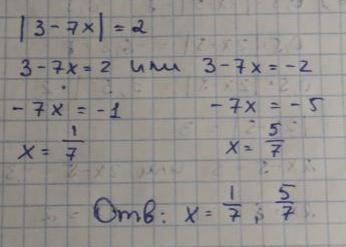 |3-7x|=2
3-7x=2 или 3-7x=-2
-7x=-1 -7x=-5
x=1/7 x=5/7
Отв: x=1/7; 5/7